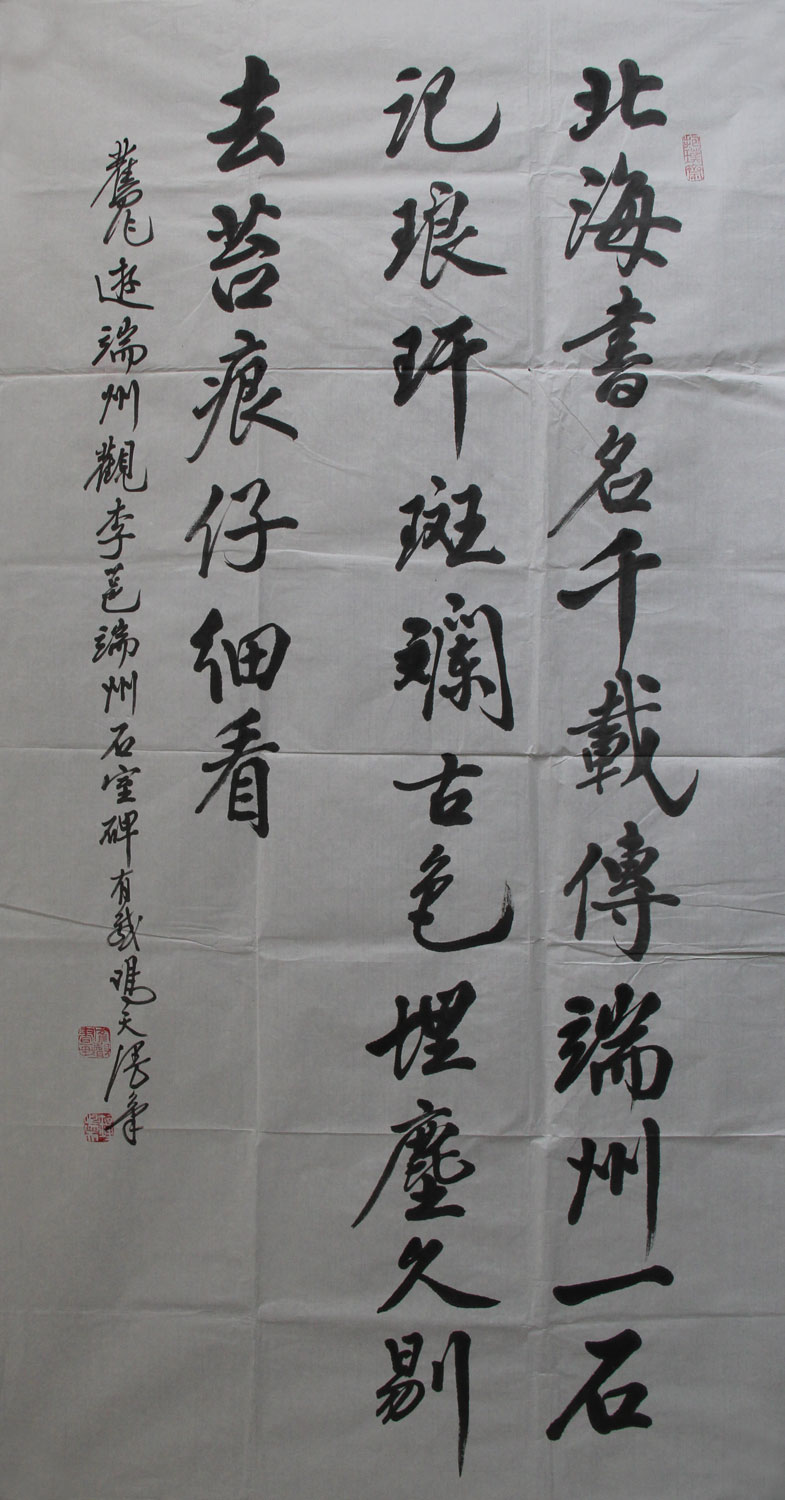 北海書名千載傳端州一石
記琅玕斑斕古色埋塵久剔
去苔痕仔細看
舊作遊端州觀李邕端州石室碑有感 天 筆